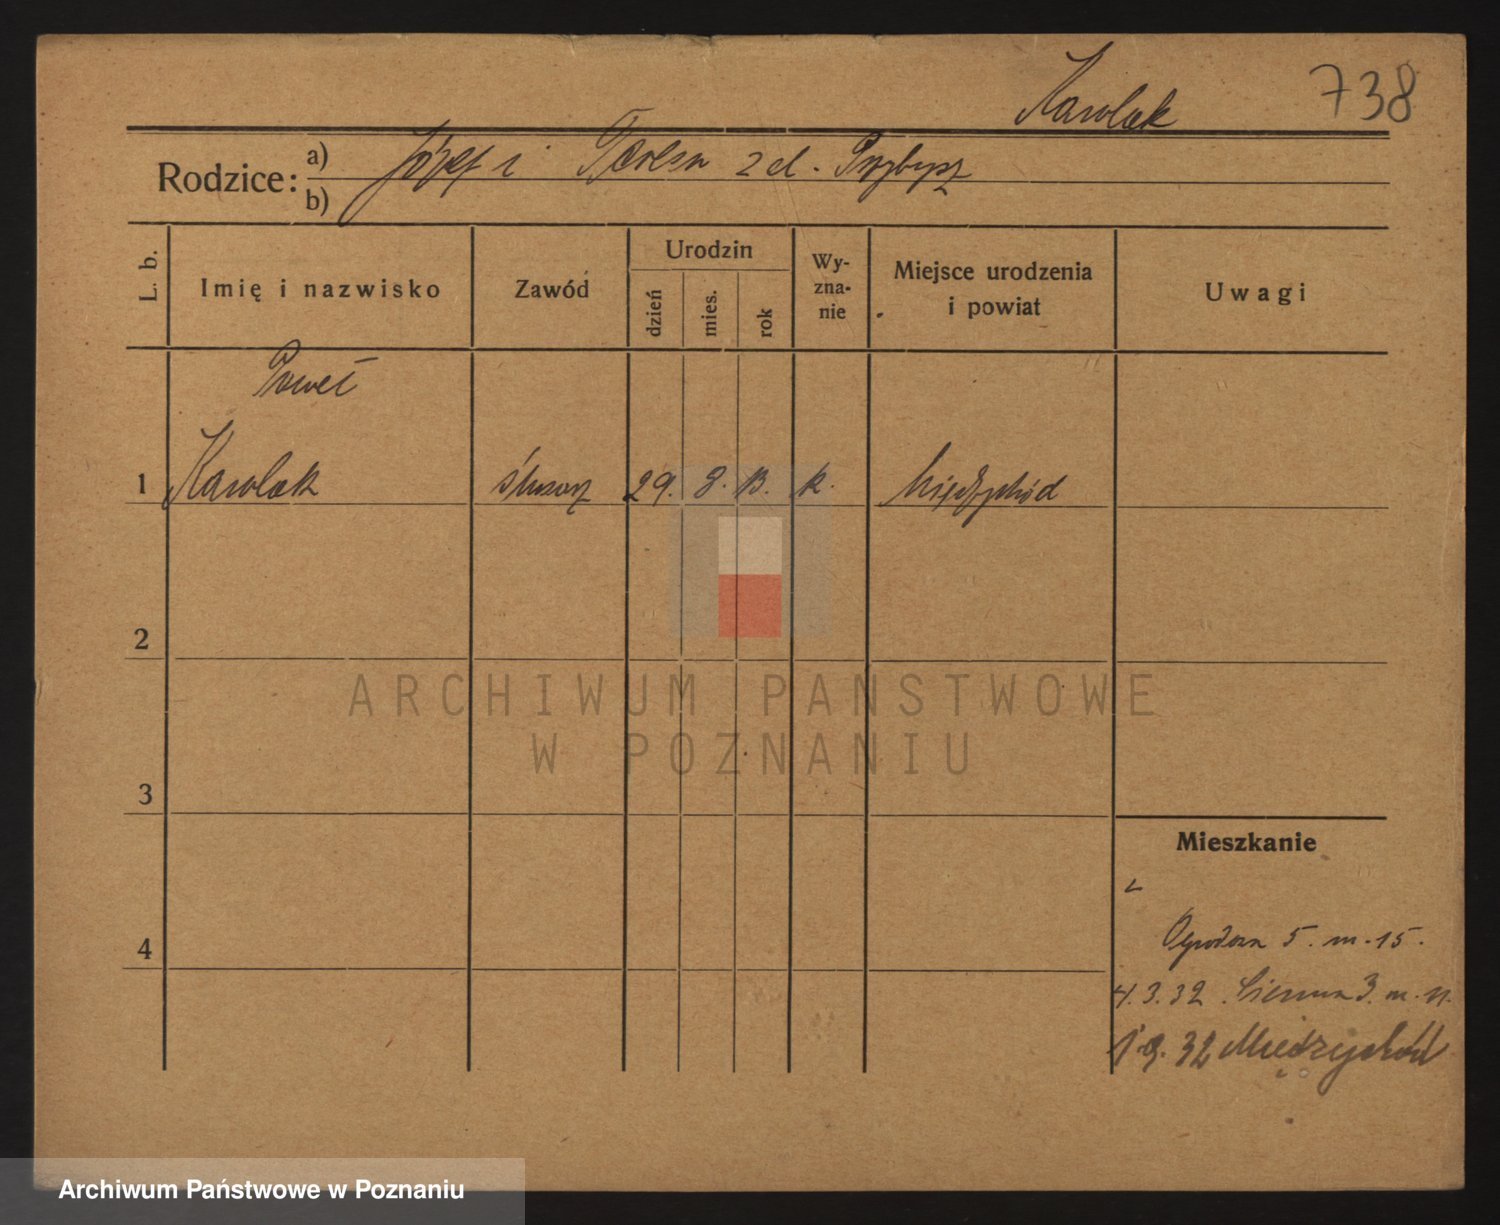 Karolak 738
Rodzice: a) Józef i Teresa z d. Przybysz
b)
L. b. Imię i nazwisko Zawód Urodzin dzień mies. rok Wyznanie Miejsce urodzenia i powiat Uwagi
Paweł
1 Karolak ślusarz 29. 8. 13. k. Międzychód
2
ARCHIWUM PAŃSTWOWE
W POZNANIU
3
Mieszkanie
Ogrodowa 5. m. 15.
4
4.3.32 3. m. 11.
1.9.32 Międzychód
Archiwum Państwowe w Poznaniu